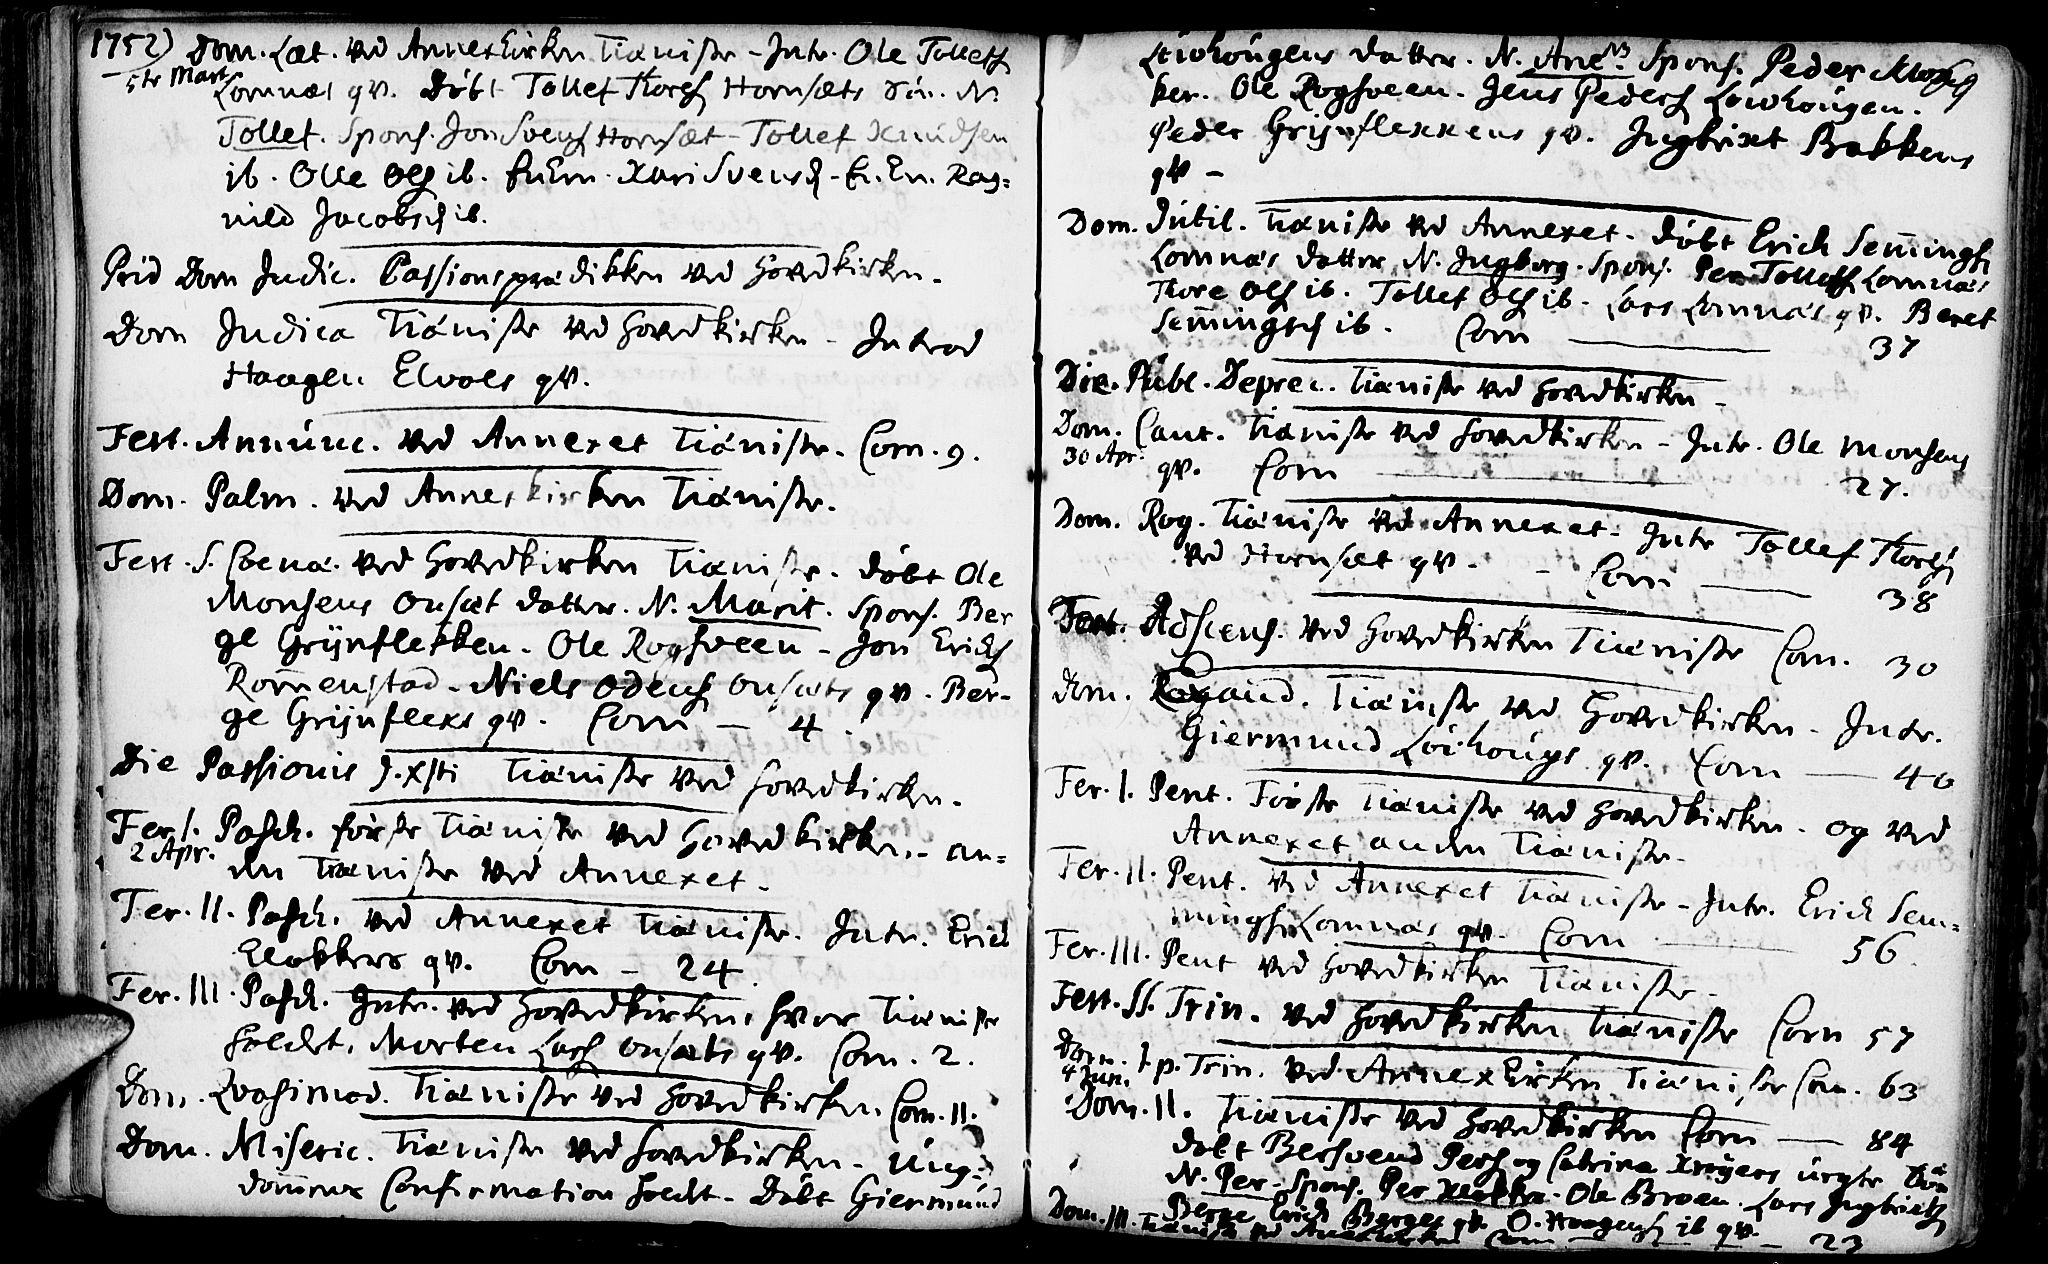 1752) Dom. Læt. ved Annexkirken Tiæniste - Intr. Ole Tollefs
5te Mart. Lomnæs qv. Døbt Tollef Thores Hornsæts Søn. N.
Tollef. Spons. Jon Svens Hornsæt - Tollef Knudsen
ib. Olle Ols ib. Kari Svensd - Rag=
nild Jacobsd ib.
Prid Dom Judic. Passionsprædikken ved Hovedkirken.
Dom Judica Tiæniste ved Hovedkirken - Introd
Haagen Elvaes qv.
Fest. Annunc. ved Annexet Tiæniste. Com. 9.
Dom. Palm. ved Annexkirken Tiæniste.
Fest. S. Coena. ved Hovedkirken Tiæniste. Døbt Ole
Monsens Onsæt datter. N. Marit. Spons. Ber
ge Grijnflekken. Ole Rogsveen - Jon Erichs
Rom̄enstad - Niels Odens Onsæts qv. Ber-
ge Grijnfleks qv. Com — 4.
Die Passionis J. Xsti Tiæniste ved Hovedkirken.
Fer. I. Pasch. første Tiæniste ved Hovedkirken. - an=
2 Apr. den Tiæniste ved Annexet.
Fer. II. Pasch. ved Annexet Tiæniste. Intr. Erich
Elbakkens qv. Com — 24
Fer. III. Pasch. Intr. ved Hovedkirken, hvor Tiæniste
holdt, Morten Lars Onsæts qv. Com. 2.
Dom. Qvasimod. Tiæniste ved Hovedkirken. Com. 11.
Dom. Miseric. Tiæniste ved Hovedkirken - Ung=
dom̄ens Confirmation holdt - Døbt Giermund
Løvhougens datter. N. Ane. Spons. Peder
ker. Ole Rogsveen. Jens Peders Løvhougen.
Peder Grijnflekkens qv. Ingbrixt Bakkens
qv —
Dom. Jubil. Tiæniste ved Annexet. Døbt Erich Sem̄ings
Lomnæs datter N. Ingborg. Spons. Per Tollefs Lomnæs
Thore Ols ib. Tollef Ols ib. Lars Lomnæs qv. Beret
Sem̄ingsd ib. Com — 37
Die. Publ. Deprec. Tiæniste ved Hovedkirken -
Dom. Cant. Tiæniste ved Hovedkirken - Intr. Ole Monsens
30 Apr. qv. Com — 27.
Dom. Rog. Tiæniste ved Annexet - Intr Tollef Thores
ved Hornsæt qv. - Com — 38
Fest. Adscens. ved Hovedkirken Tiæniste Com. 30
Dom. Exaud. Tiæniste ved Hovedkirken - Intr.
Giermund Løvhougs qv. Com — 40
Fer. I. Pent. Første Tiæniste ved Hovedkirken - og ved
Annexet anden Tiæniste.
Fer. II. Pent. ved Annexet Tiæniste - Intr. Erich Sem=
mings Lomnæs qv. Com — 56
Fer. III. Pent ved Hovedkirken Tiæniste -
Fest. SS. Trin. ved Hovedkirken Tiæniste Com 57
Dom. I p. Trin. ved Annexkirken Tiæniste Com. 63
4 Jun.
Dom. II. Tiæniste ved Hovedkirken Com — 84
Døbt Bersvend Pers og Catrina uegte Søn
N. Per - Spons. Per - Ole Broen - Lars Ingbrixts
Berge Erich Berges qv. O. Haagens ib qv. -
Dom. III. Tiæniste ved Annexkirken Com — 23